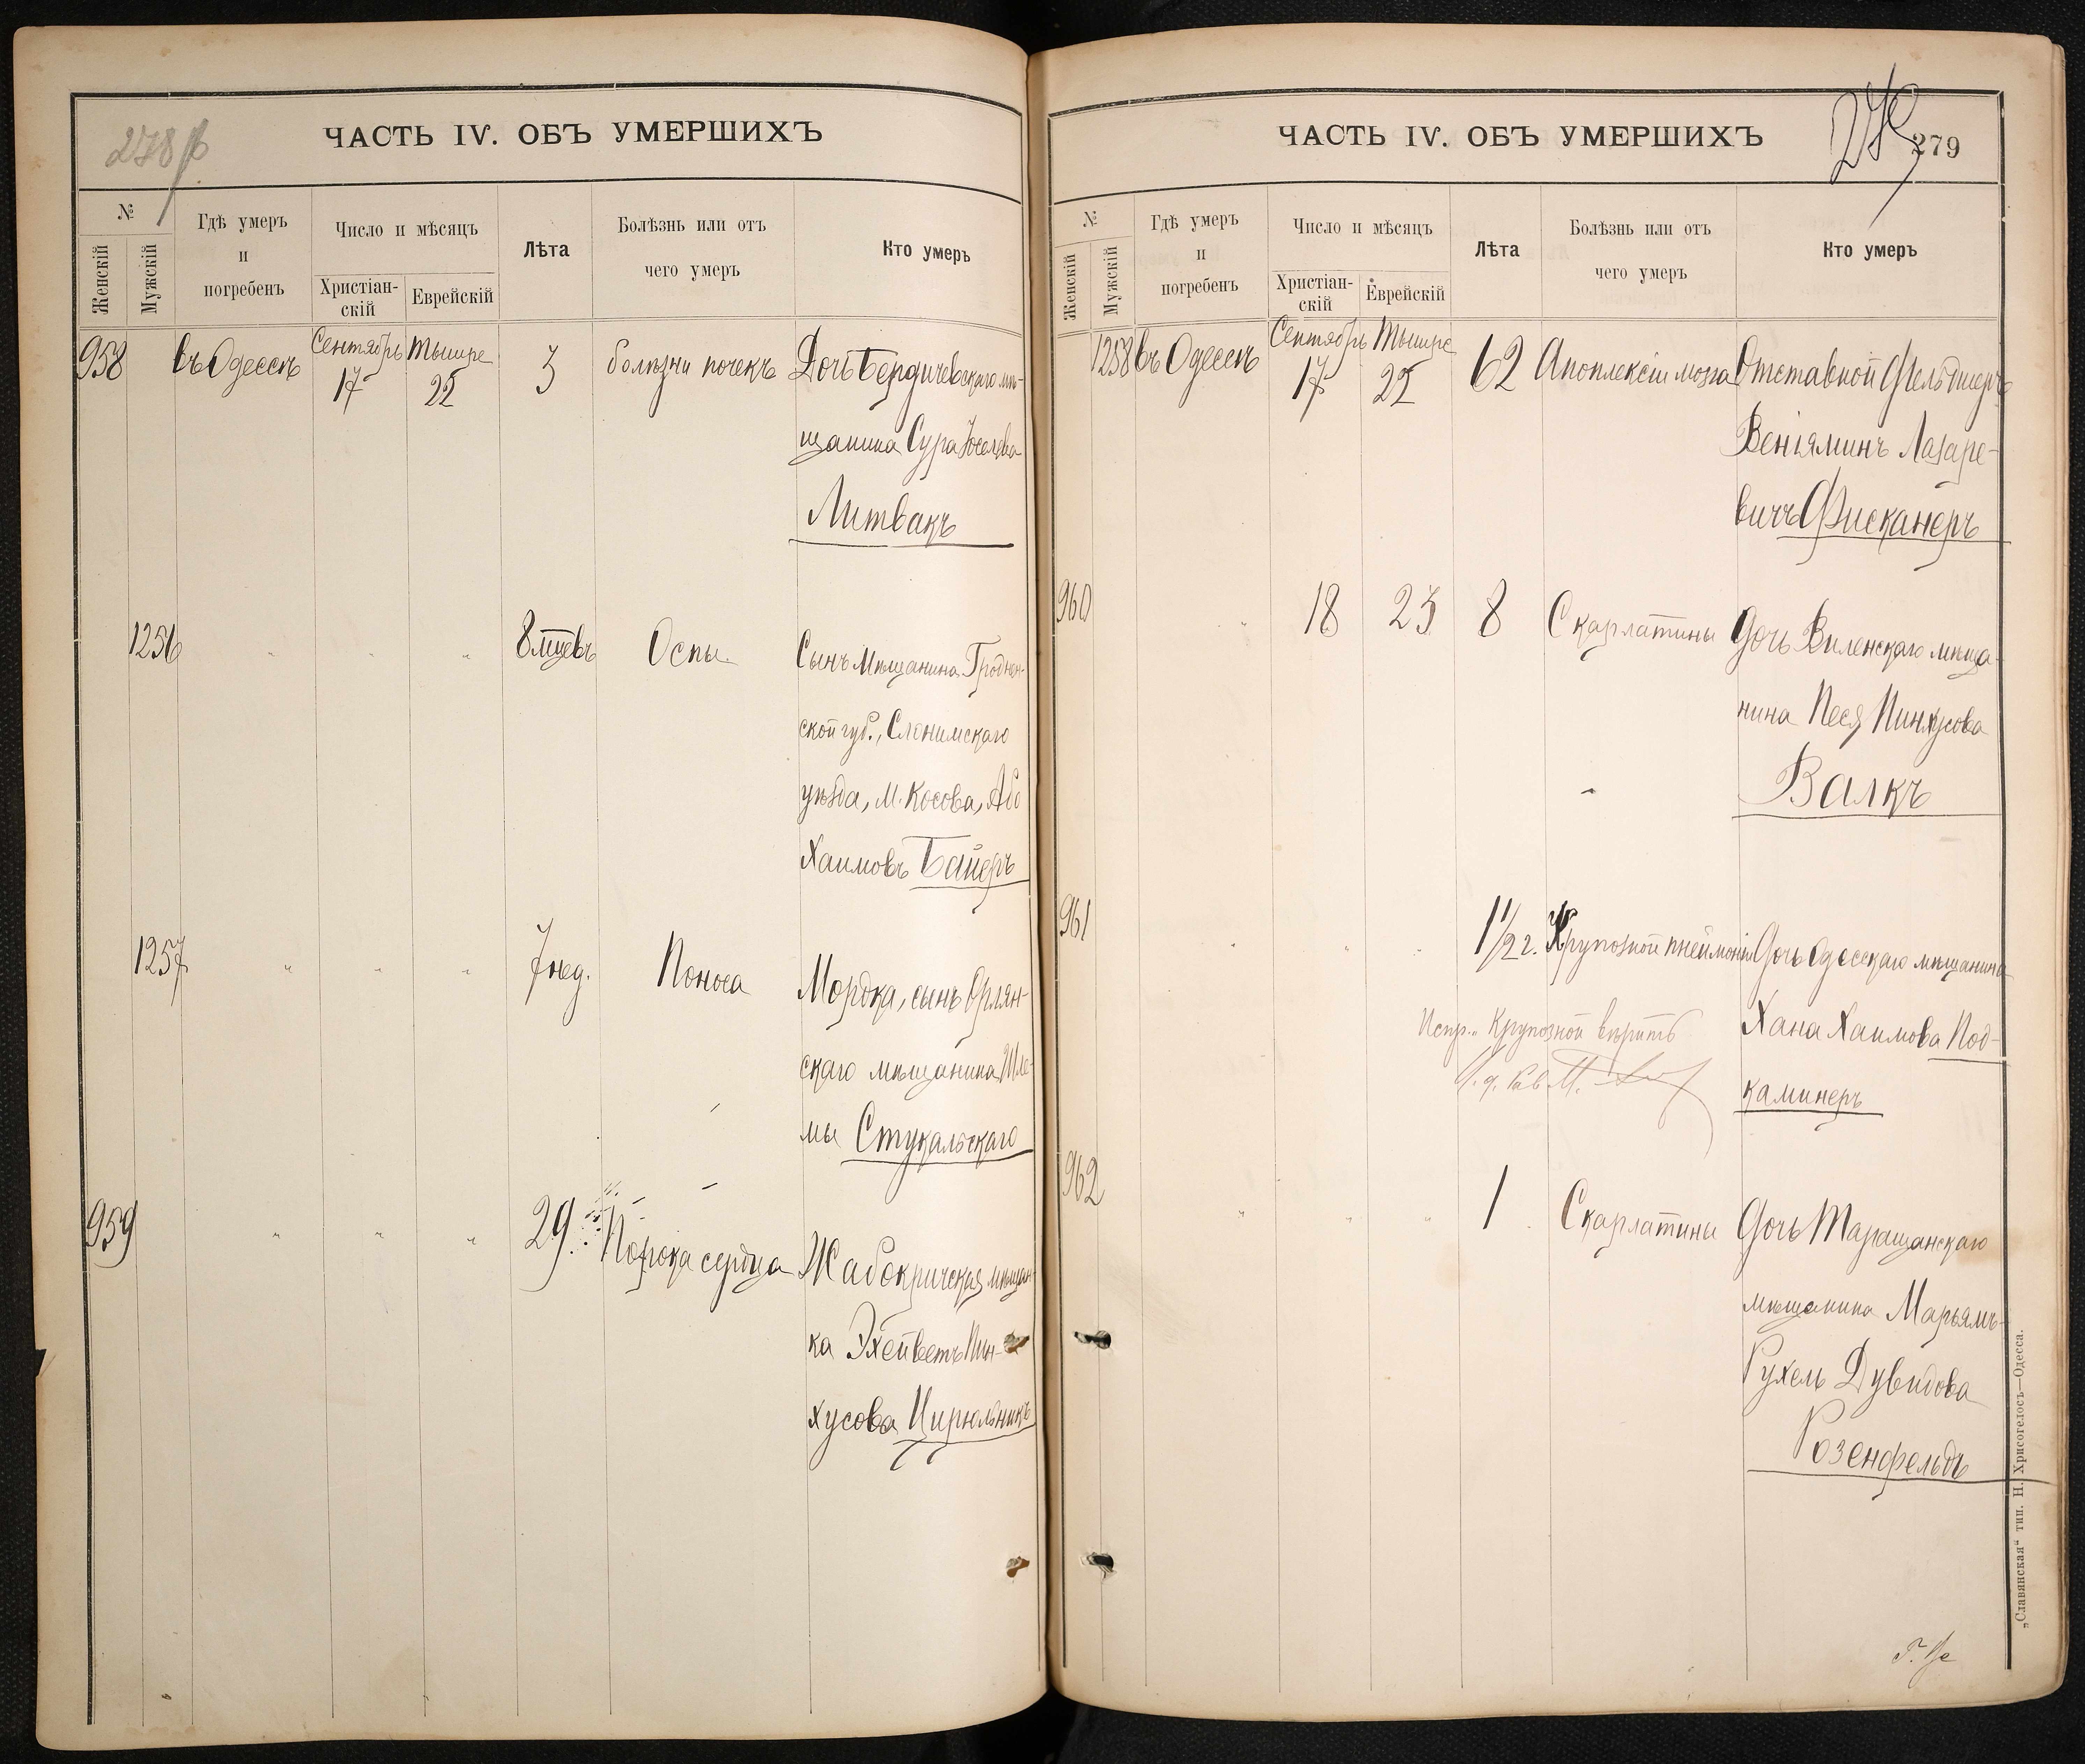 278 об
ЧАСТЬ IV. ОБЪ УМЕРШИХЪ
№
Женскій
Мужскій
Гдѣ умеръ
и
погребенъ
Число и мѣсяцъ
Христіан-
скій
Еврейскій
Лѣта
Болѣзнь или отъ
чего умеръ
Кто умеръ
958 въ Одессѣ Сентябрь 17 Тышре 22 3 болѣзни почекъ Дочь Бердичевскаго мѣ-
щанина Сура Іоселева
Литвакъ
1256 " " " 8 мцевъ Оспы Сынъ мѣщанина Гроднен-
ской губ., Слонимскаго
уѣзда, м. Косова, Або
Хаимовъ Байеръ
1257 " " " 7 нед. Поноса Мордка, сынъ Орлян-
скаго мѣщанина Шле-
мы Стукальскаго
959 " " " 29 Порока сердца Жабокричская мѣщан-
ка Эхейветъ Пин-
хусова Цирюльникъ
ЧАСТЬ IV. ОБЪ УМЕРШИХЪ
279
279
№
Женскій
Мужскій
Гдѣ умеръ
и
погребенъ
Число и мѣсяцъ
Христіан-
скій
Еврейскій
Лѣта
Болѣзнь или отъ
чего умеръ
Кто умеръ
1258 въ Одессѣ Сентябрь 17 Тышре 22 62 Апоплексіи мозга Отставной Фельдшеръ
Веніяминъ Лазаре-
вичъ Фисканеръ
960 " 18 23 8 Скарлатины Дочь Виленскаго мѣща-
нина Песя Пинкусова
Валкъ
961 " " " 1 1/2 г. Крупозной пнеймоніи Дочь Одесскаго мѣщанина
Испр.: Крупозной вѣрить
Хана Хаимова Под-
каминеръ
962 " " " 1 Скарлатины Дочь Таращанскаго
мѣщанина Марьямъ-
Рухель Дувидова
Розенфельдъ
„Славянская“ тип. Н. Хрисогелосъ—Одесса.